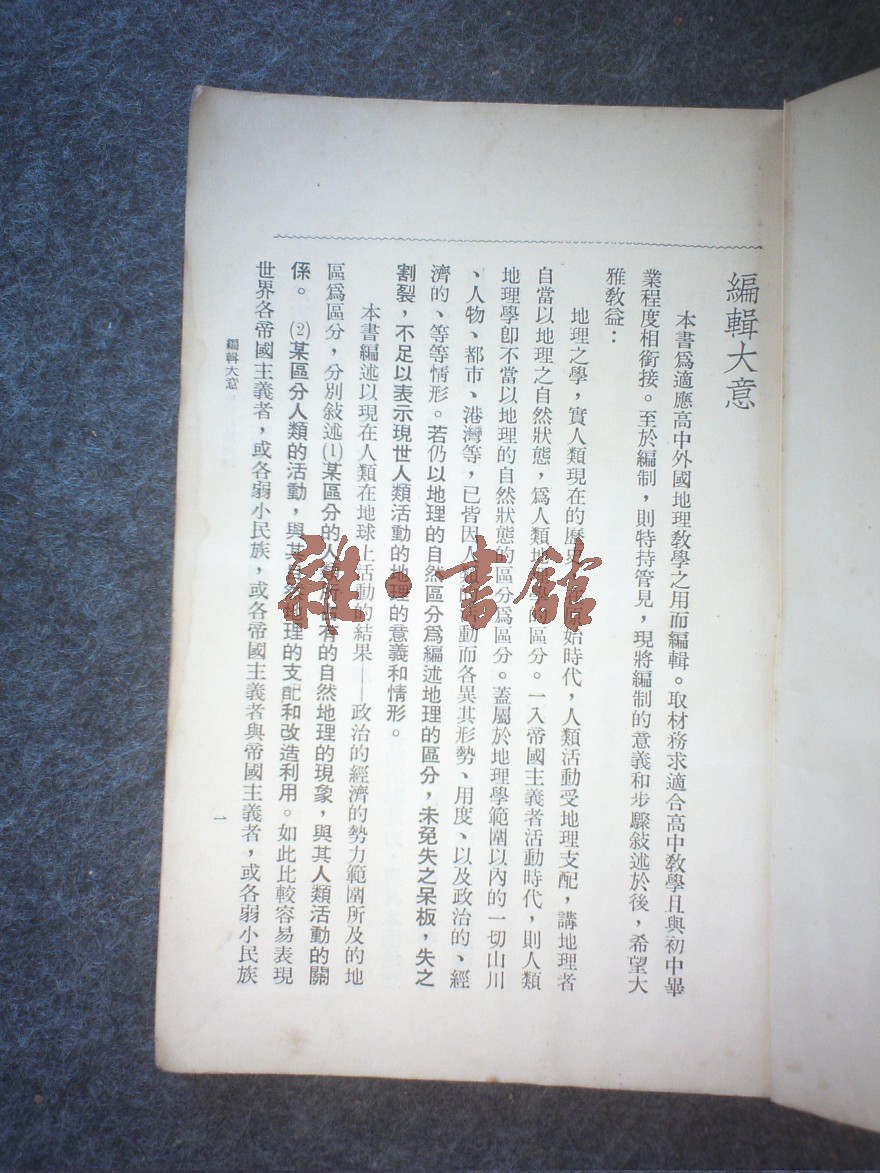 編輯大意
本書爲適應高中外國地理教學之用而編輯。取材務求適合高中教學且與初中畢
業程度相銜接。至於編制，則特持管見，現將編制的意義和步驟敍述於後，希望大
雅教益：
地理之學，實人類現在的歷史。始時代，人類活動受地理支配，講地理者
自當以地理之自然狀態，爲人類地的區分。一入帝國主義者活動時代，則人類
地理學卽不當以地理的自然狀態的區分爲區分。蓋屬於地理學範圍以內的一切山川
、人物、都市、港灣等，已皆因人類的活動而各異其形勢、用度、以及政治的、經
濟的、等等情形。若仍以地理的自然區分爲編述地理的區分，未免失之呆板，失之
割裂，不足以表示現世人類活動的地理的意義和情形。
本書編述以現在人類在地球上活動的結果——政治的經濟的勢力範圍所及的地
區爲區分，分別敍述(1)某區分的人有的自然地理的現象，與其人類活動的關
係。(2)某區分人類的活動，與其自然地理的支配和改造利用。如此比較容易表現
世界各帝國主義者，或各弱小民族，或各帝國主義者與帝國主義者，或各弱小民族
編輯大意
一
雜·書館